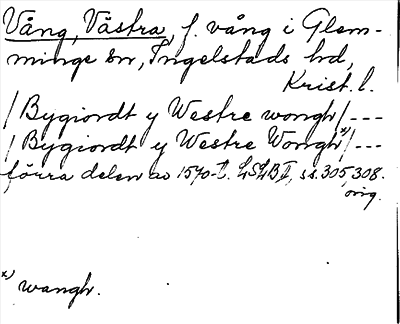 Vång, Västra, f. vång i Glem-
minge sn, Ingelstads hd,
Krist. l.
/Bygiordt y Westre wongh/---
/Bygiordt y Westre Wongh x)/---
förra delen av 1570-t. LSLB I, ss. 305, 308.
orig.
x) wangh.